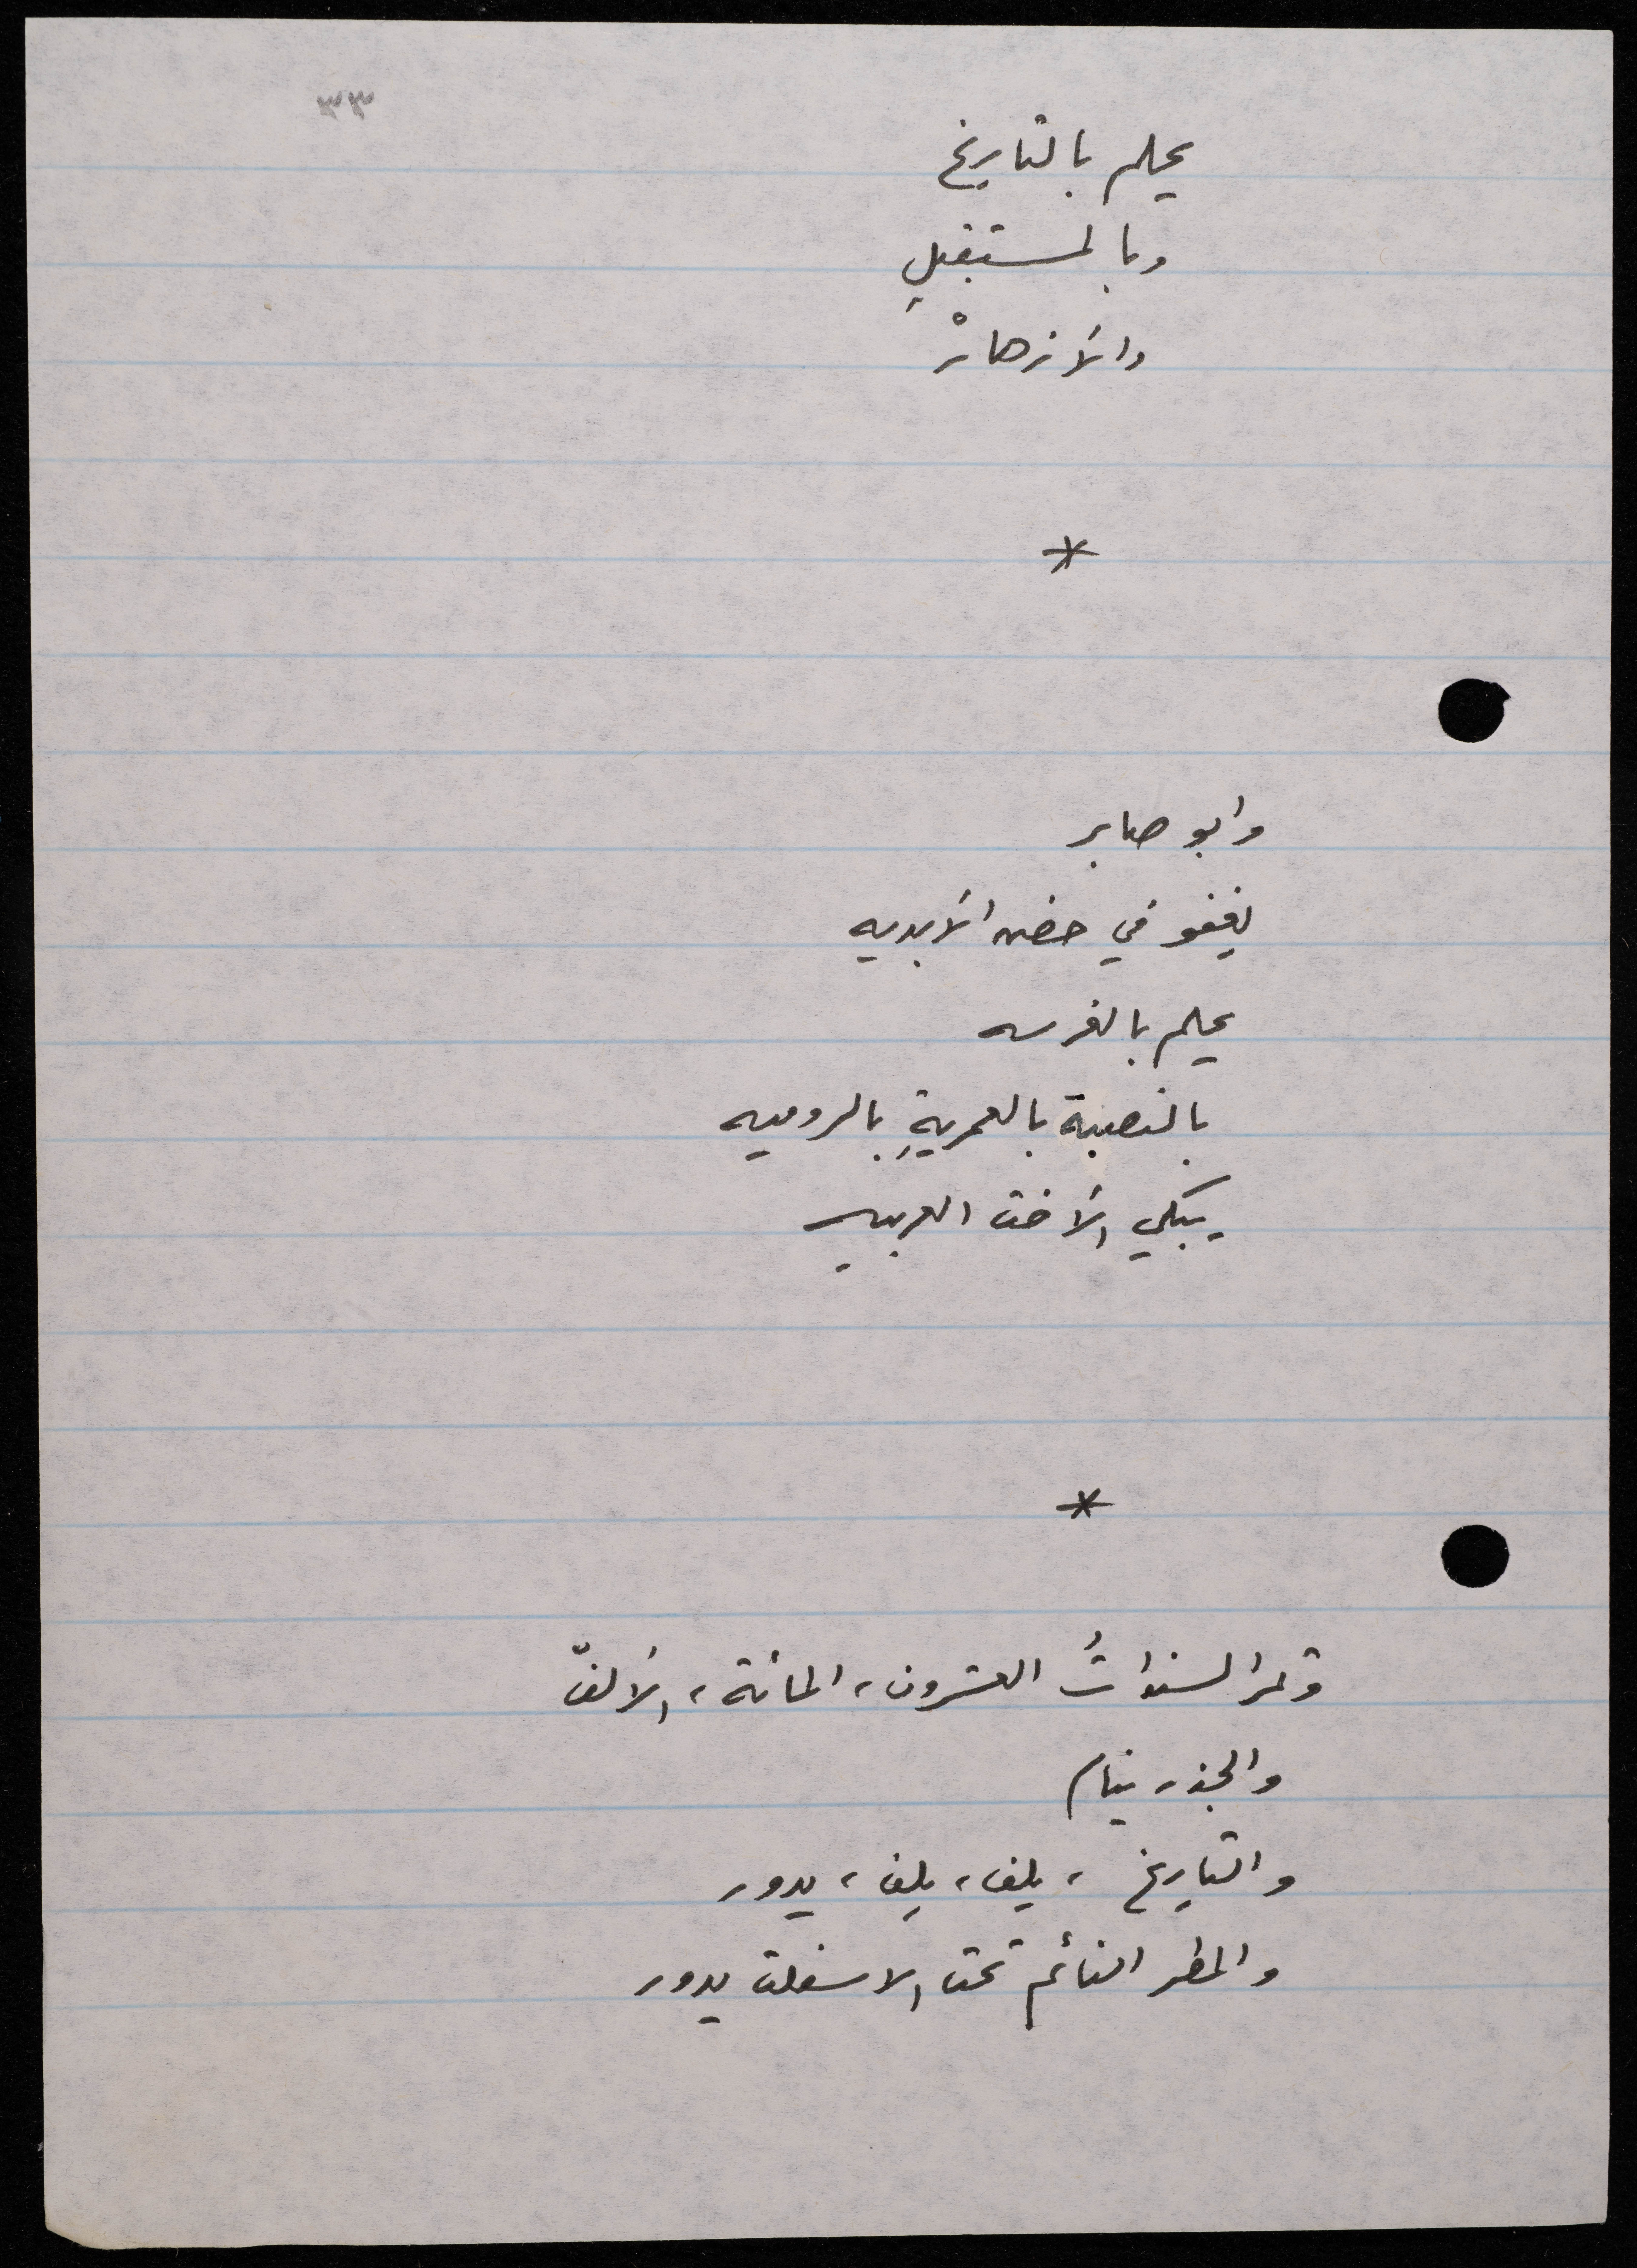 ٣٣
يحلم بالتاريخ
وبالمستقبلِ
والأزهارْ
*
وابو صابر
يغفو في حضن الأبديه
يحلم بالفرسه
بالنصبة بالعمريةِ بالروميه
يبكي الأخت العربيه
*
وتمر السنواتُ العشرون، المائة، الألفّ
والجذر ينام
والتاريخ ، يلف، يلِف، يدور
والمطر النائم تحت الاسفلت يدور